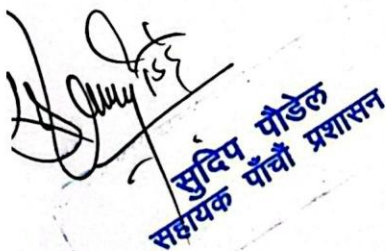 सुदिप पौडेल
सहायक पाँचौं प्रशासन